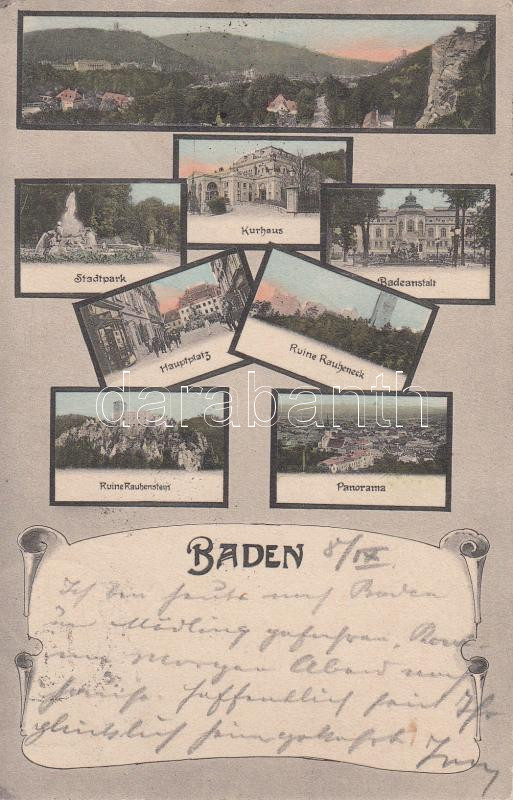 Kurhaus
Stadtpark
Badeanstalt
Hauptplatz
Ruine Rauheneck
darabanth
Ruine Rauhenstein
Panorama
BADEN 8/IX.
Ich bin heute nach Baden
Mödling gefahren,
morgen Abend
hoffentlich sein
glücklich heimgekehrt.